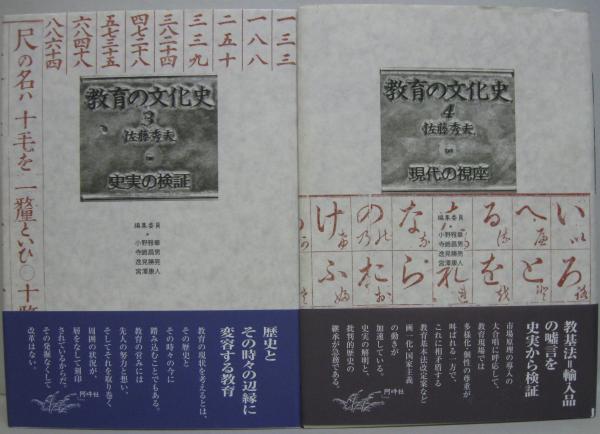 一三三
一八八
二五十
三三九
三八二十四
四七二十八
五七三十五
六八四十八
八八六十四
尺の名ハ十毛を一釐といひ〇十釐
教育の文化史
3
佐藤秀夫
史実の検証
編集委員
小野雅章
寺崎昌男
逸見勝亮
宮澤康人
歴史と
その時々の辺縁に
変容する教育
教育の現状を考えるとは、
その歴史と
その時々の今に
踏み込むことでもある。
教育の営みには
先人の努力と想い、
そしてそれを取り巻く
周囲の状況が、
層をなして刻印
されているからだ。
その発掘なくして
改革はない。
阿吽社
教育の文化史
4
佐藤秀夫
現代の視座
編集委員
小野雅章
寺崎昌男
逸見勝亮
宮澤康人
い
ろ
へ
と
る
を
れ
な
ら
の
お
け
ふ
教基法=輸入品
の嘘言を
史実から検証
市場原理の導入の
大合唱に呼応して、
教育現場では
多様化・個性の尊重が
叫ばれる一方で、
これに相矛盾する
教育基本法改定案など
画一化・国家主義
の動きが
加速している。
史実の解明と、
批判的歴史の
継承が急務である。
阿吽社